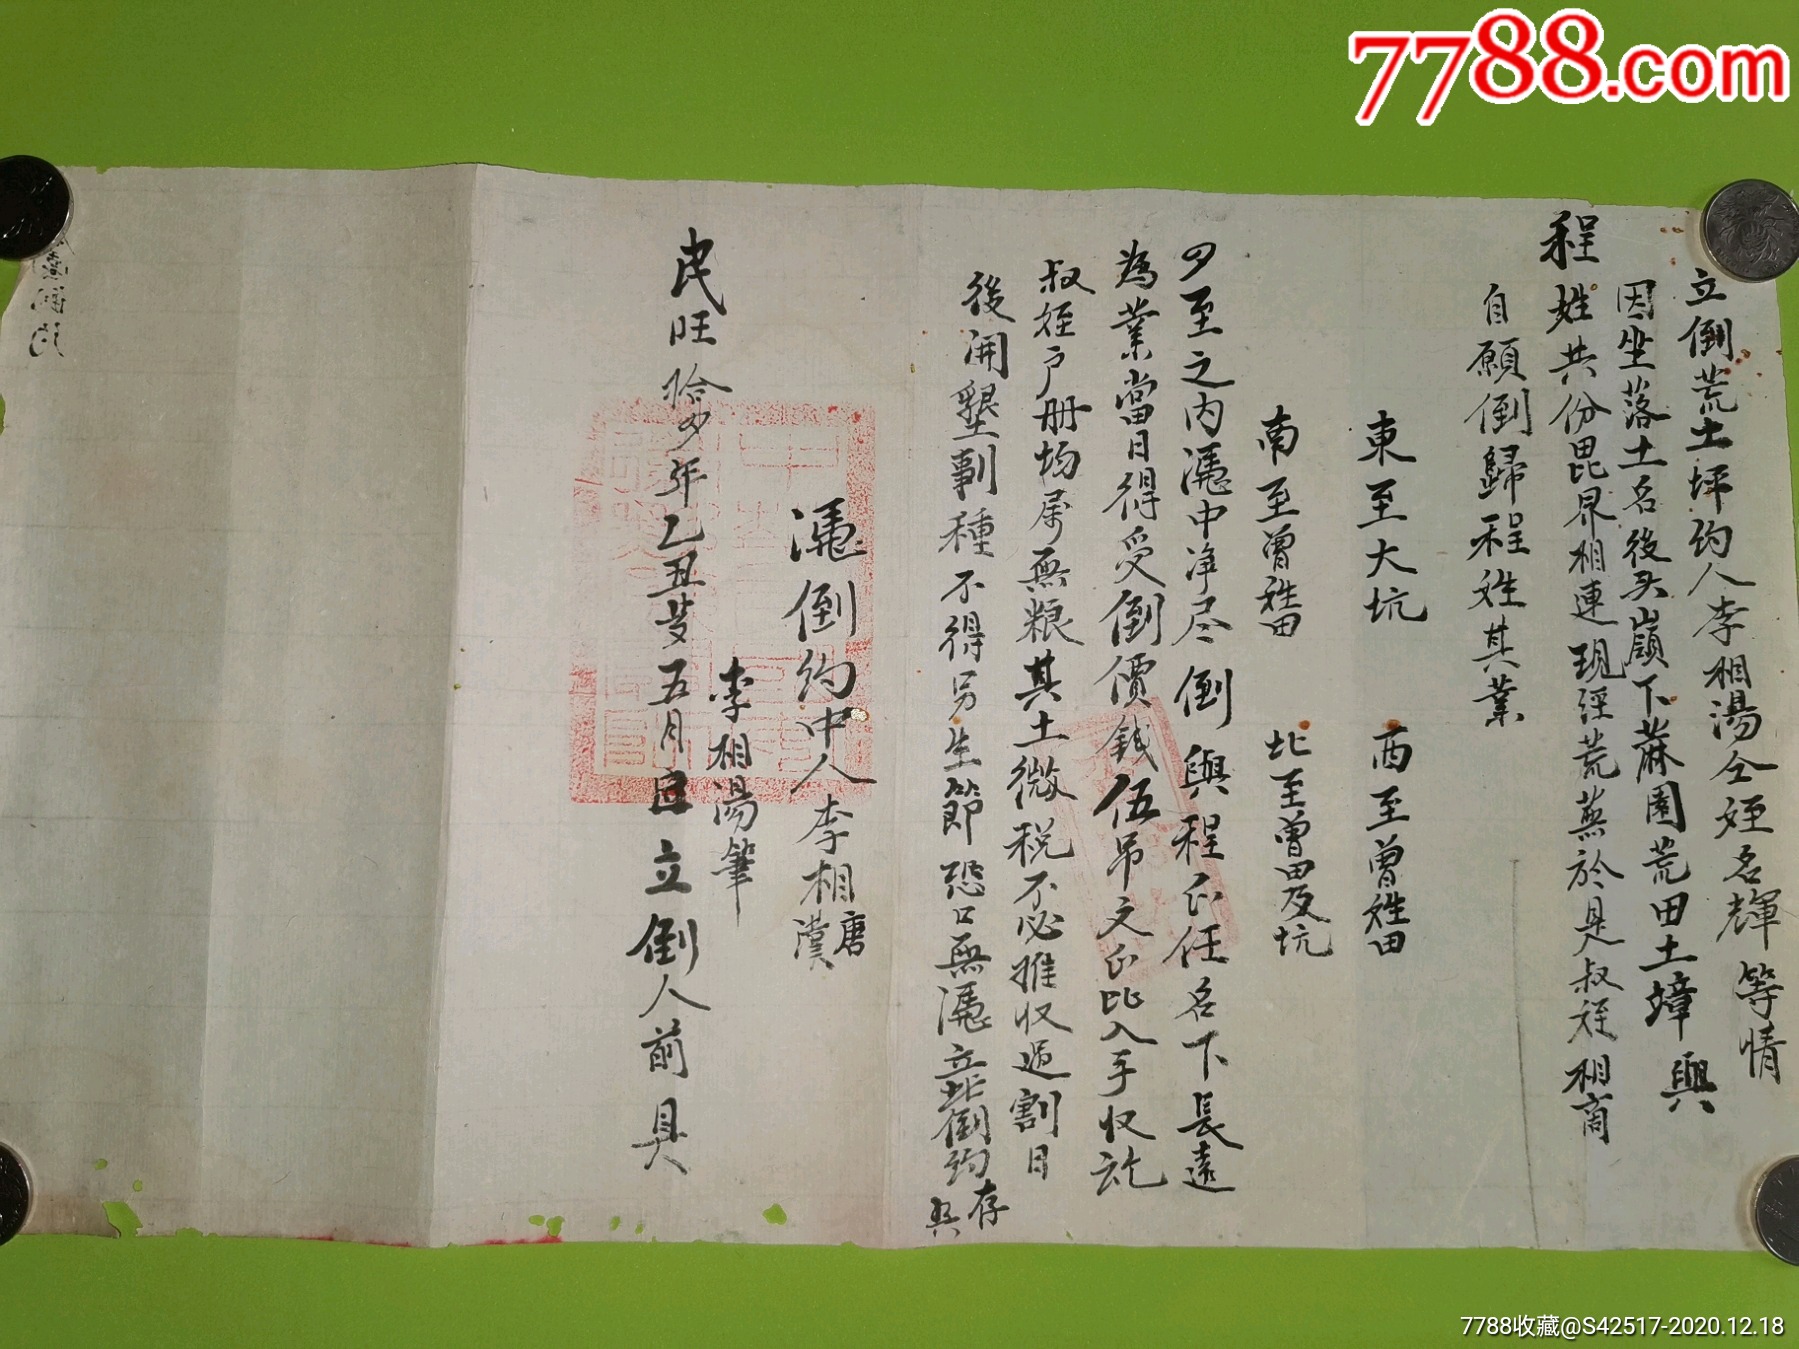 7788.com
立倒荒土坪约人李相湯仝姪名輝等情
因坐落土名後头嶺下蔴園荒田土墇與
程姓共份毘界相連現經荒蕪於是叔姪相商
自願倒歸程姓其業
東至大坑 西至曾姓田
南至曾姓田 北至曾田及坑
四至之内憑中净尽倒與程正任名下長遠
為業當日得受倒價錢伍吊文正比入手収訖
叔姪户册均属無粮其土微税不必推収過割日
後開墾剚種不得另生節恐口無憑立此倒约存
契
憑倒约中人李相唐
漢
李相湯筆
民旺拾四年乙丑岁五月日立倒人前具
7788收藏@S42517-2020.12.18